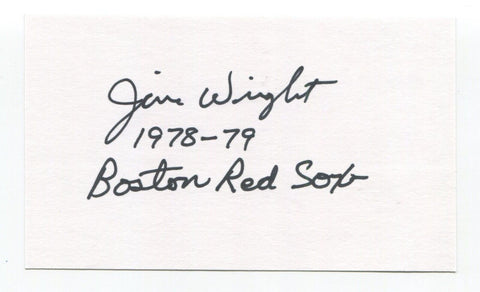 Jim Wright
1978-79
Boston Red Sox